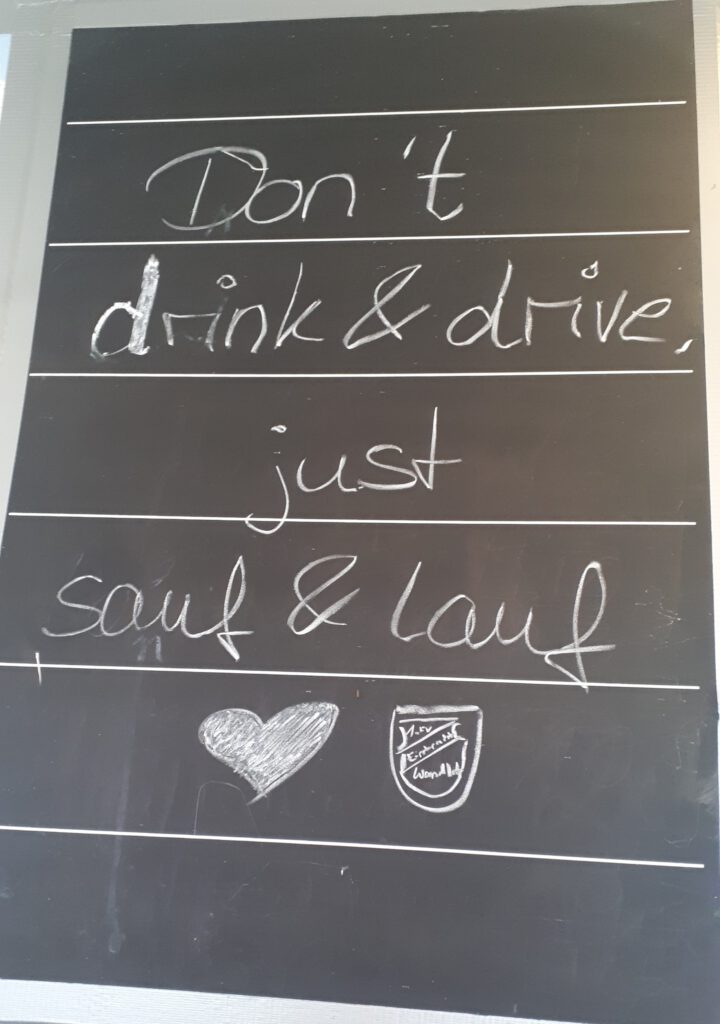 Don't
drink & drive,
just
sauf & lauf
1. FV
Eintracht
Wandlitz